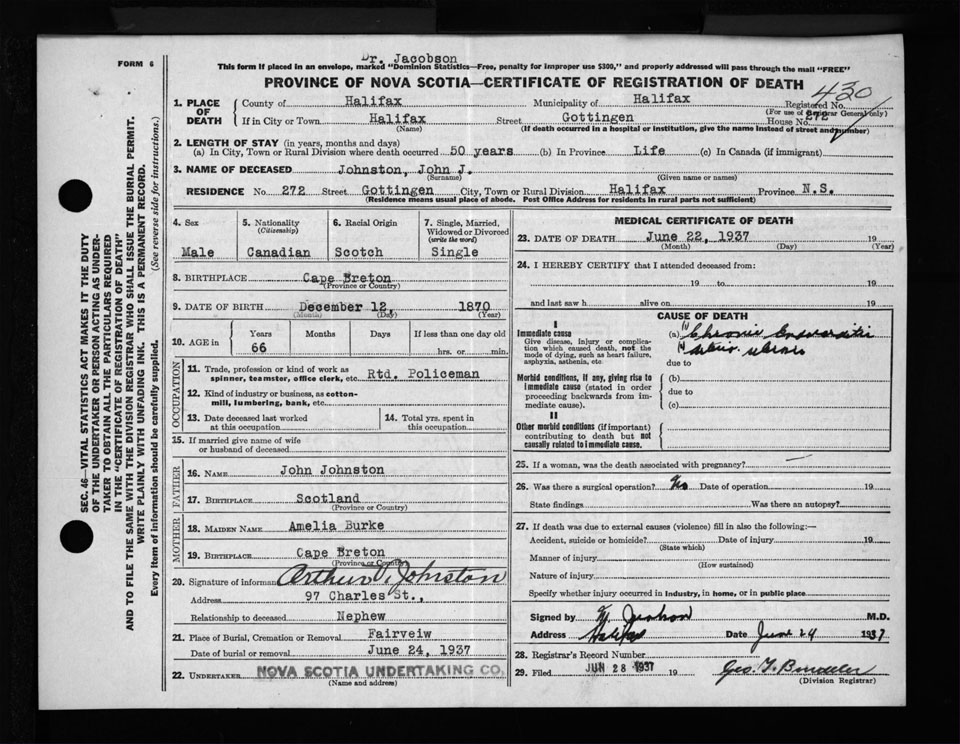 FORM 6
Dr. Jacobson
This form if placed in an envelope, marked "Dominion Statistics—Free, penalty for improper use $300," and properly addressed will pass through the mail "FREE"
PROVINCE OF NOVA SCOTIA—CERTIFICATE OF REGISTRATION OF DEATH
430
1. PLACE OF DEATH
County of Halifax Municipality of Halifax Registered No.
(For use of Registrar General only)
If in City or Town Halifax Street Gottingen House No. 272
(Name) (If death occurred in a hospital or institution, give the name instead of street and number)
2. LENGTH OF STAY (in years, months and days)
(a) In City, Town or Rural Division where death occurred 50 years (b) In Province Life (c) In Canada (if immigrant)
3. NAME OF DECEASED Johnston, John J.
(Surname) (Given name or names)
RESIDENCE No. 272 Street Gottingen City, Town or Rural Division Halifax Province N.S.
(Residence means usual place of abode. Post Office Address for residents in rural parts not sufficient)
4. Sex
Male
5. Nationality
(Citizenship)
Canadian
6. Racial Origin
Scotch
7. Single, Married, Widowed or Divorced
(write the word)
Single
8. BIRTHPLACE Cape Breton
(Province or Country)
9. DATE OF BIRTH December 12, 1870
(Month) (Day) (Year)
10. AGE in
Years Months Days If less than one day old
66 hrs. or min.
OCCUPATION
11. Trade, profession or kind of work as
spinner, teamster, office clerk, etc. Rtd. Policeman
12. Kind of industry or business, as cotton-
mill, lumbering, bank, etc.
13. Date deceased last worked
at this occupation
14. Total yrs. spent in
this occupation
15. If married give name of wife
or husband of deceased
FATHER
16. NAME John Johnston
17. BIRTHPLACE Scotland
(Province or Country)
MOTHER
18. MAIDEN NAME Amelia Burke
19. BIRTHPLACE Cape Breton
(Province or Country)
20. Signature of informant Arthur V. Johnston
Address 97 Charles St.,
Relationship to deceased Nephew
21. Place of Burial, Cremation or Removal Fairveiw
Date of burial or removal June 24, 1937
22. UNDERTAKER NOVA SCOTIA UNDERTAKING CO.
(Name and address)
MEDICAL CERTIFICATE OF DEATH
23. DATE OF DEATH June 22, 1937 19
(Month) (Day) (Year)
24. I HEREBY CERTIFY that I attended deceased from:
19 to 19
and last saw h alive on 19
CAUSE OF DEATH
I
Immediate cause
Give disease, injury or complica-
tion which caused death, not the
mode of dying, such as heart failure,
asphyxia, asthenia, etc
(a) Chronic
due to
Morbid conditions, if any, giving rise to
immediate cause (stated in order
proceeding backwards from im-
mediate cause).
(b)
due to
(c)
II
Other morbid conditions (if important)
contributing to death but not
causally related to immediate cause.
25. If a woman, was the death associated with pregnancy? —
26. Was there a surgical operation? No Date of operation 19
State findings Was there an autopsy?
27. If death was due to external causes (violence) fill in also the following:—
Accident, suicide or homicide? Date of injury 19
(State which)
Manner of injury
(How sustained)
Nature of injury
Specify whether injury occurred in industry, in home, or in public place
Signed by M.D.
Address Halifax Date June 24 1937
28. Registrar's Record Number
29. Filed JUN 28 1937 19
(Division Registrar)
SEC. 46—VITAL STATISTICS ACT MAKES IT THE DUTY
OF THE UNDERTAKER OR PERSON ACTING AS UNDER-
TAKER TO OBTAIN ALL THE PARTICULARS REQUIRED
IN THE "CERTIFICATE OF REGISTRATION OF DEATH"
AND TO FILE THE SAME WITH THE DIVISION REGISTRAR WHO SHALL ISSUE THE BURIAL PERMIT.
WRITE PLAINLY WITH UNFADING INK. THIS IS A PERMANENT RECORD.
Every item of information should be carefully supplied. (See reverse side for instructions.)